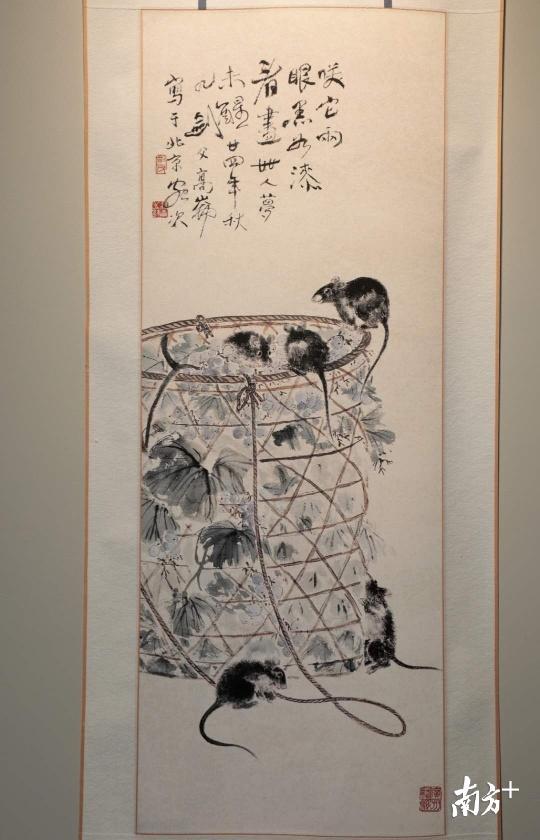 咲它兩
眼黑如漆
看盡世人夢
未醒廿四年秋
九劍父高崙
寫于北京客次
南方+